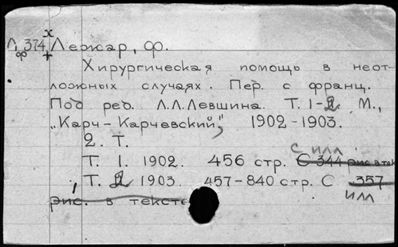 Л 374 х Лежар, Ф.
ф +
Хирургическая помощь в неот-
ложных случаях. Пер. с франц.
Под ред. Л.Л.Левшина. Т. 1-2. М.,
„Карч-Карчевский", 1902-1903.
2. Т.
с илл
Т. 1. 1902. 456 стр. С 344 рис в тек
Т. 2 1903. 457-840 стр. С 357
рис. в тексте илл